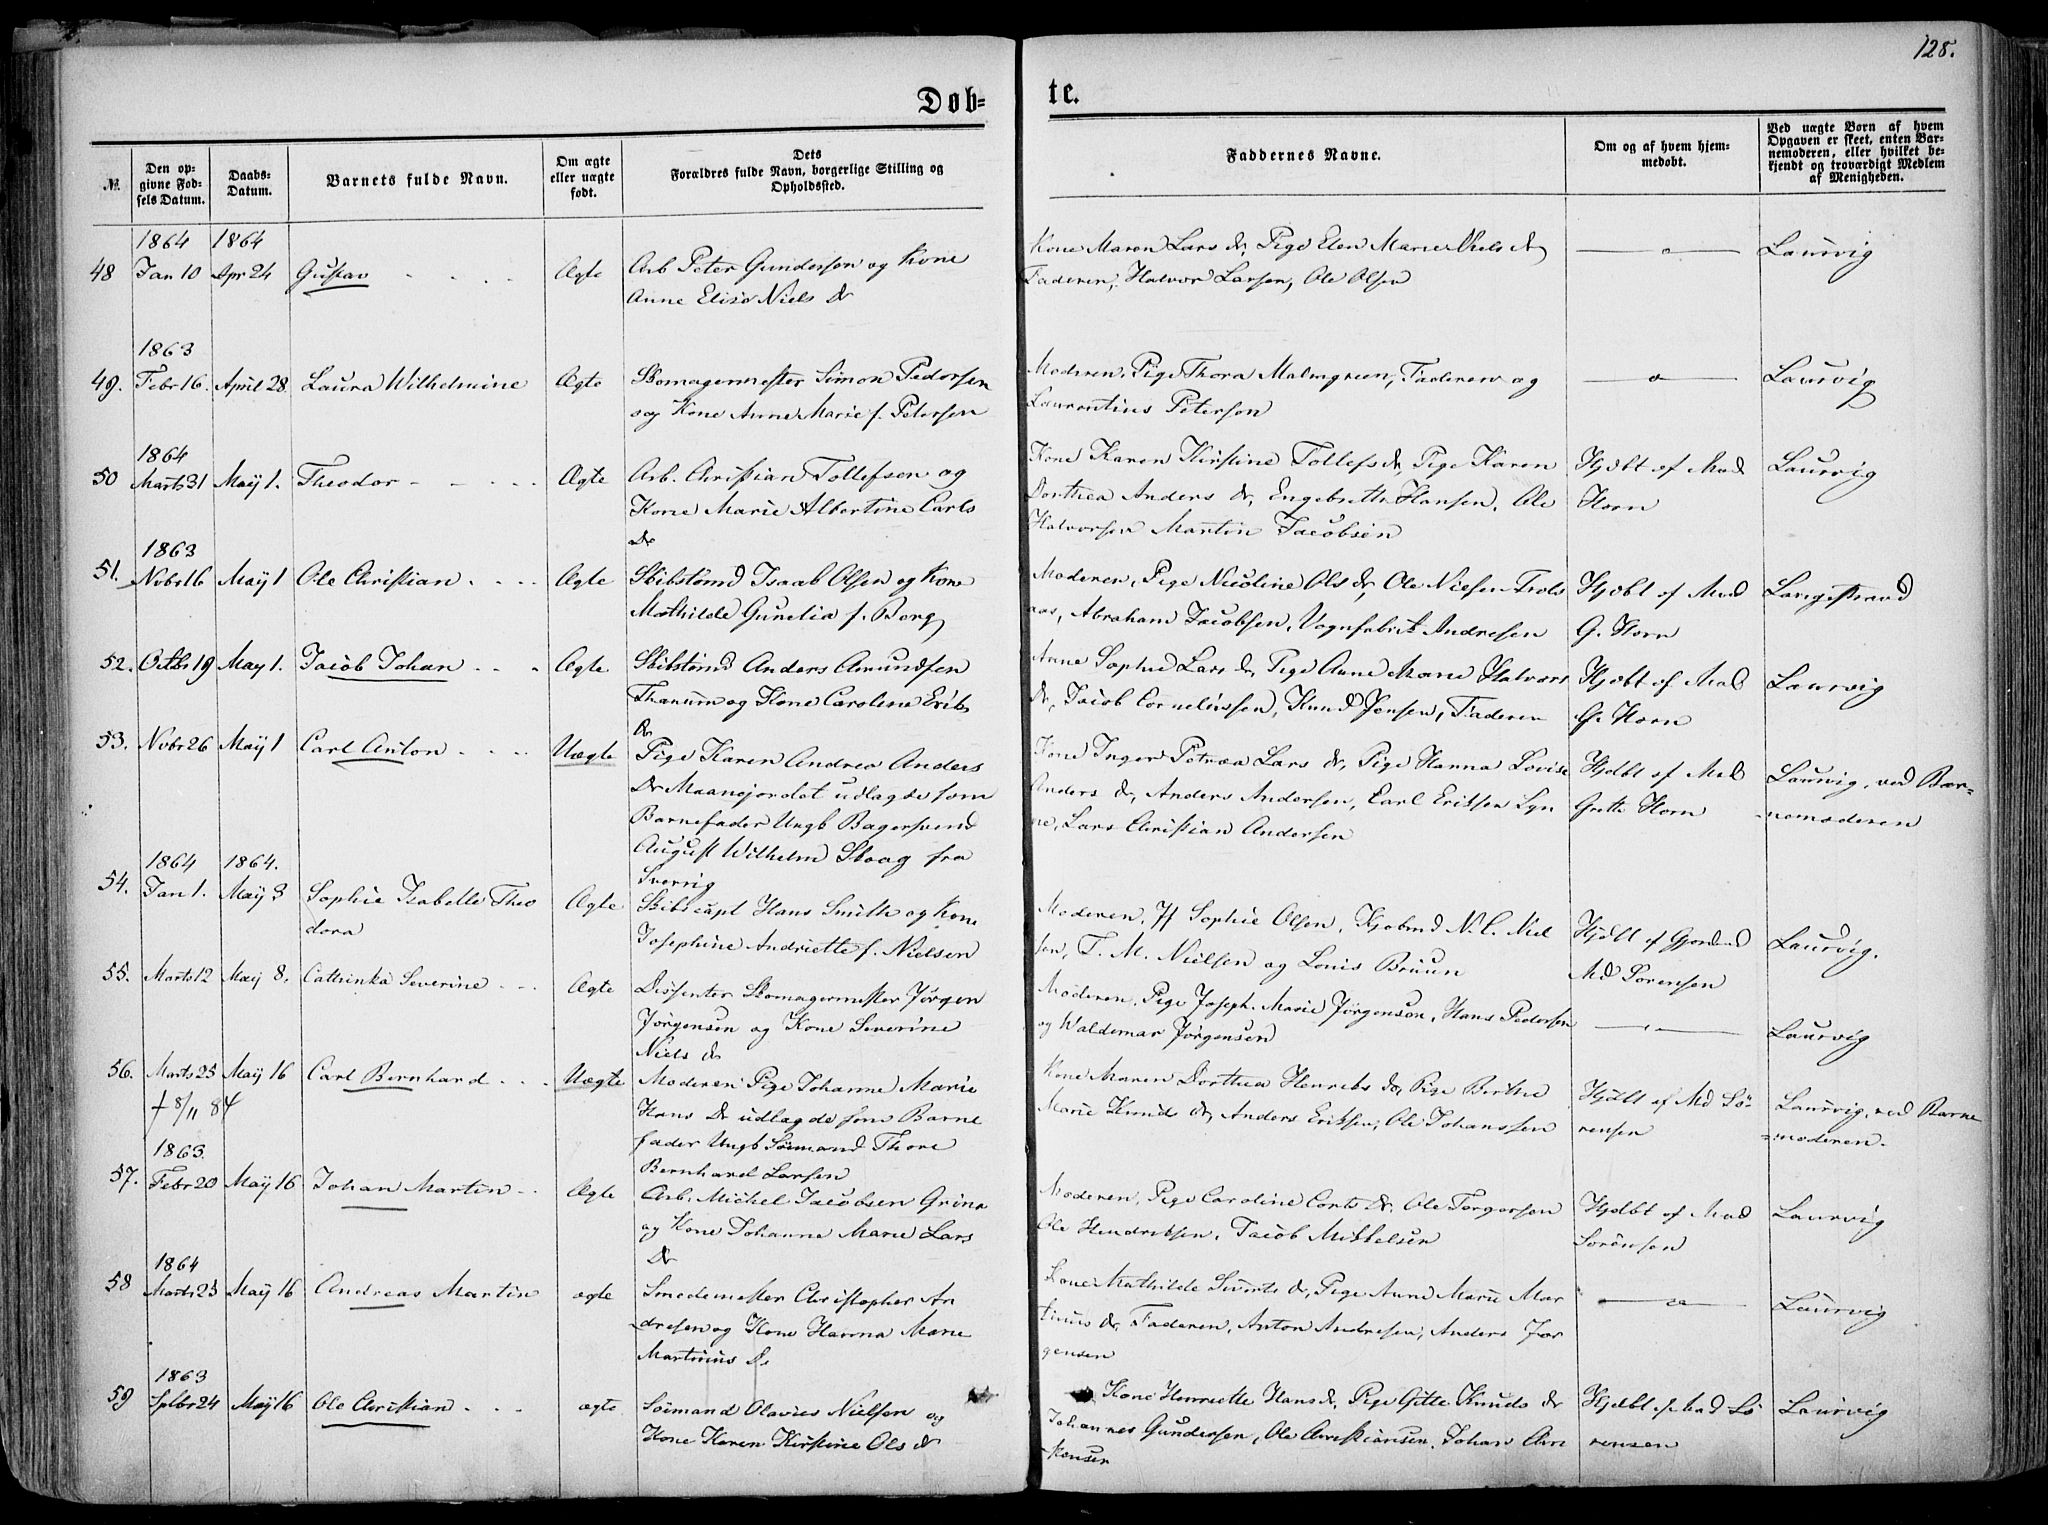 128.
Døb-
te.
№
Den op-
givne Fød-
sels Datum.
Daabs-
Datum.
Barnets fulde Navn.
Om ægte
eller uægte
født.
Dets
Forældres fulde Navn, borgerlige Stilling og
Opholdssted.
Faddernes Navne.
Om og af hvem hjem-
medøbt.
Ved uægte Børn af hvem
Opgaven er skeet, enten Bar-
nemoderen, eller hvilket be-
kjendt og troværdigt Medlem
af Menigheden.
1864 1864
48 Jan 10 Apr 24 Gustav Ægte Arb Peter Gundersen og Kone
Anne Elise Niels Dr
Kone Maren Lars dr, Pige Elen Marie Niels dr
Faderen, Halvor Larsen, Ole Olsen
Laurvig
1863
49. Febr 16. April 28. Laura Wilhelmine Ægte Skomagermester Simon Pedersen
og Kone Anne Marie f. Petersen
Moderen, Pige Thora Malmgreen, Faderen og
Laurentius Petersen
Laurvig
1864
50 Marts 31 May 1. Theodor Ægte Arb. Christian Tollefsen og
Kone Marie Albertine Carls
Dr
Kone Karen Kirstine Tollefs dr, Pige Karen
Dorthea Anders dr, Engebreth Hansen, Ole
Halvorsen Martin Jacobsen
Hjdbt af Mad
Horn
Laurvig
1863
51. Nvbr 16 May 1 Ole Christian Ægte Skibstømd Isaak Olsen og Kone
Mathilde Gunelia f. Berg
Moderen, Pige Nicoline Ols dr, Ole Nielsen Trols
aas, Abraham Jacobsen, Vognfabrikt Andresen
Hjdbt af Mad
G. Horn
Langestrand
52. Octbr 19 May 1. Jacob Johan Ægte Skibstømd Anders Amundsen
Thanum og Kone Caroline Eriks
Dr
Anne Sophie Lars dr, Pige Anne Marie Halvors
dr, Jacob Corneliussen, Knud Jensen, Faderen
Hjdbt af Mad
G. Horn
Laurvig
53. Nvbr 26 May 1 Carl Anton Uægte Pige Karen Andrea Anders
Dr Maanejordet udlagde som
Barnefader Ungk Bagersvend
August Wilhelm Skoag fra
Sverrig
Kone Inger Petrea Lars dr, Pige Hanna Lovise
Anders dr, Anders Andersen, Carl Eriksen Lyn
ne, Lars Christian Andersen
Hjdbt af Mad
Grethe Horn
Laurvig, ved Bar-
nemoderen
1864 1864.
54. Jan 1. May 3 Sophie Isabelle Theo
dora
Ægte Skibscapt Hans Smith og Kone
Josephine Andriette f. Nielsen
Moderen, Jf Sophie Olsen, Kjøbmd N. C. Niel
sen, T. M. Nielsen og Louis Bruun
Hjdbt af Gjordmd
Md Sorensen
Laurvig.
55. Marts 12 May 8. Cathinka Severine Ægte Dissenter Skomagermester Jørgen
Jørgensen og Kone Severine
Niels dr
Moderen, Pige Joseph. Marie Jørgensen, Hans Pedersen
og Waldemar Jørgensen
Laurvig
56. Marts 25 May 16 Carl Bernhard Uægte Moderen Pige Johanne Marie
Hans Dr udlagde som Barne
fader Ungk Sømand Thore
Bernhard Larsen
† 8/11 84
Kone Maren Dorthea Henriks dr, Pige Berthe
Marie Knuds dr, Anders Eriksen, Ole Johanssen
Hjdbt af Md Sö-
rensen
Laurvig, ved Barne
=moderen.
1863.
57. Febr 20 May 16 Johan Martin Ægte Arb. Mickel Jacobsen Grina
og Kone Johanne Marie Lars
Dr
Moderen, Pige Caroline Corls Dr, Ole Torgersen
Ole Hendriksen, Jacob Mikkelsen
Hjdbt af Mad
Sörensen
Laurvig
1864
58 Marts 23 May 16 Andreas Martin ægte Smedemester Christopher An
dresen og Kone Hanna Marie
Martinius Dr
Kone Mathilde Sivers dr, Pige Anne Marie Mar
tinius dr, Faderen, Anton Andresen, Anders Jør
gensen
Laurvig
1863
59 Sptbr 24 May 16 Ole Christian ægte Sömand Olavies Nielsen og
Kone Karen Kirstine Ols dr
Kone Henriette Hans dr, Pige Gitte Knuds dr
Johannes Gundersen, Ole Christiansen, Johan Chri
stensen
Hjdbt af Mad Sö
rensen
Laurvig